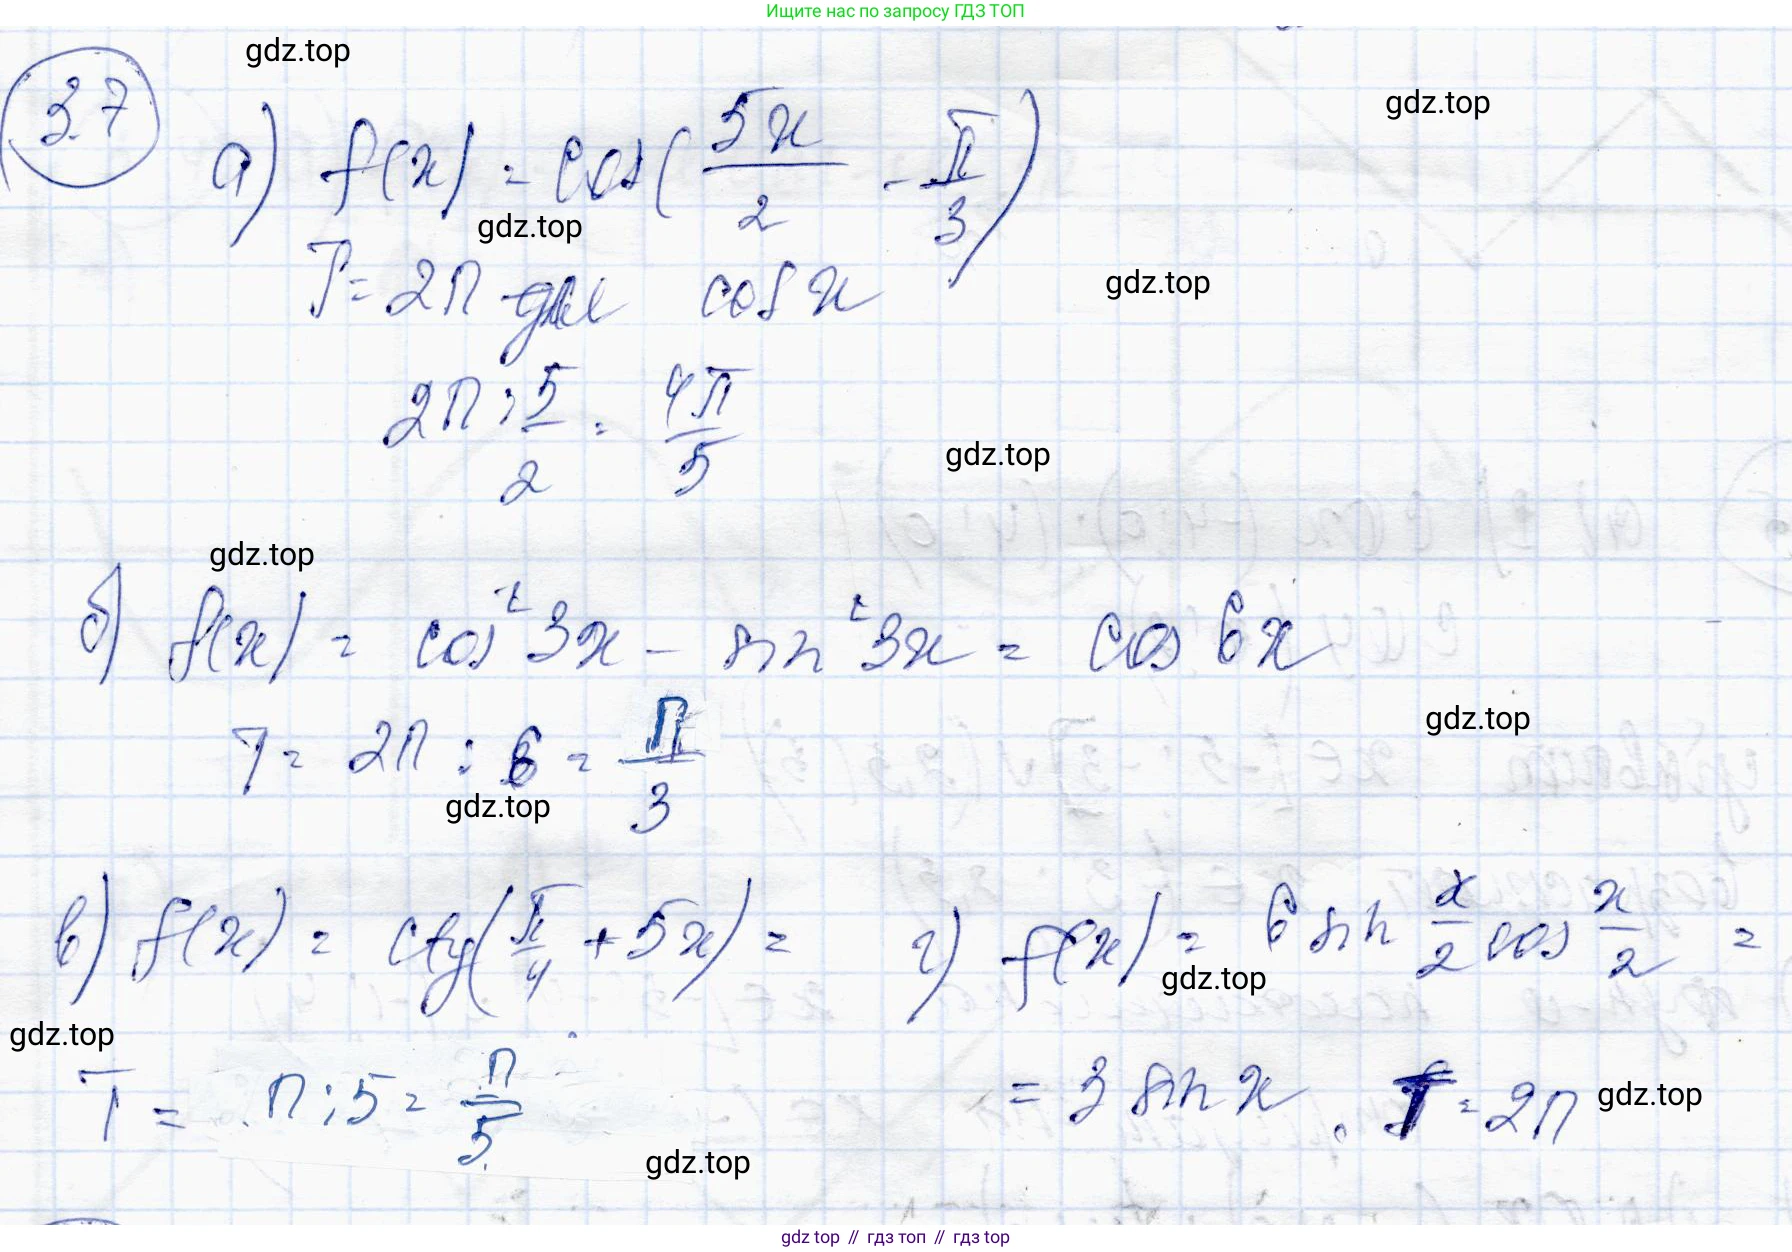 Ищите нас по запросу ГДЗ ТОП
gdz.top
gdz.top
3.7
а) f(x) = cos(5x/2 - π/3)
gdz.top
gdz.top
T = 2π для cos x
2π : 5/2 = 4π/5
gdz.top
gdz.top
б) f(x) = cos²3x - sin²3x = cos 6x
gdz.top
T = 2π : 6 = π/3
gdz.top
в) f(x) = ctg(π/4 + 5x) =
г) f(x) = 6 sin x/2 cos x/2 =
gdz.top
gdz.top
T = π : 5 = π/5
= 3 sin x. T = 2π
gdz.top
gdz.top
gdz top // гдз топ // гдз top